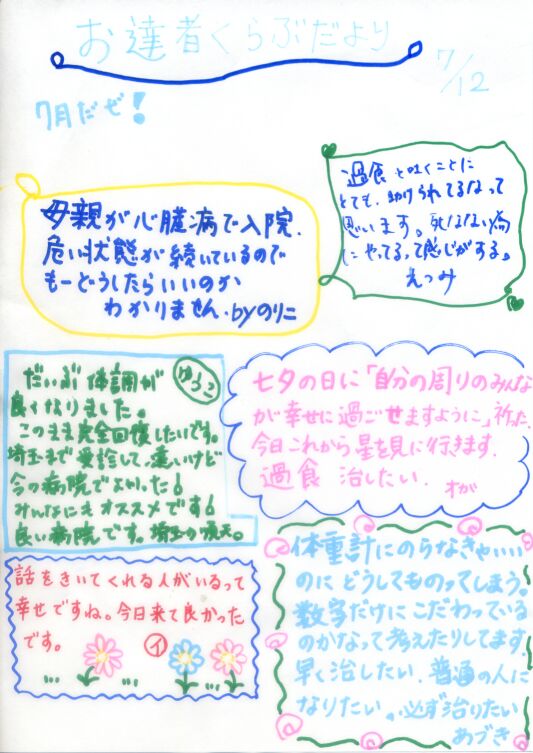 お達者くらぶだより
7/12
7月だぜ!
過食と吐くことに
とても、助けられてるなって
思います。死なない為
にやってるって感じがする。
えつみ
母親が心臓病で入院、
危い状態が続いているので
もーどうしたらいいのか
わかりません.byのりこ
だいぶ体調が
良くなりました。
ゆうこ
このまま完全回復したいです。
埼玉まで受診して、遠いけど
今の病院でよかった!
みんなにもオススメです!
良い病院です。埼玉の順天。
七夕の日に「自分の周りのみんな
が幸せに過ごせますように」祈った
今日これから星を見に行きます.
過食 治したい. オガ
話をきいてくれる人がいるって
幸せですね。今日来て良かった
です。 イ
体重計にのらなきゃいい
のに どうしてものってしまう。
数字だけに こだわっている
のかなって考えたりしてます
早く治したい. 普通の人に
なりたい。必ず治りたい
あづき